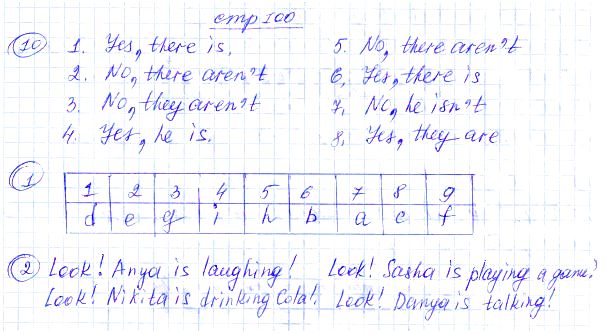 стр 100
10 1. Yes, there is. 5. No, there aren't
2. No, there aren't 6, Yes, there is
3. No, they aren't 7, No, he isn't
4. Yes, he is. 8, Yes, they are
1 1 2 3 4 5 6 7 8 9
d e g i h b a c f
2 Look! Anya is laughing! Look! Sasha is playing a game!
Look! Nikita is drinking Cola! Look! Danya is talking!